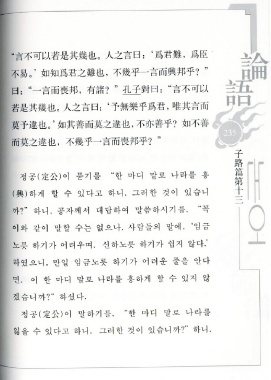 “言不可以若是其幾也。人之言曰：‘爲君難，爲臣
不易。’如知爲君之難也，不幾乎一言而興邦乎？”
曰：“一言而喪邦，有諸？” 孔子對曰：“言不可
以若是其幾也。人之言曰：‘予無樂乎爲君，唯其言而
莫予違也。’如其善而莫之違也，不亦善乎？如不善
而莫之違也，不幾乎一言而喪邦乎？”
정공(定公)이 묻기를 “한 마디 말로 나라를 흥
(興)하게 할 수 있다고 하니, 그러한 것이 있습니
까?” 하니, 공자께서 대답하여 말씀하시기를, “꼭
이와 같이 말할 수는 없으나, 사람들의 말에, ‘임금
노릇 하기가 어려우며, 신하노릇 하기가 쉽지 않다.’
하였으니, 만일 임금노릇 하기가 어려운 줄을 안다
면, 이 한 마디 말로 나라를 흥하게 할 수 있지 않
겠습니까?” 하셨다.
정공(定公)이 말하기를, “한 마디 말로 나라를
잃을 수 있다고 하니, 그러한 것이 있습니까?” 하니,
論語
235
子路篇第十三
논어